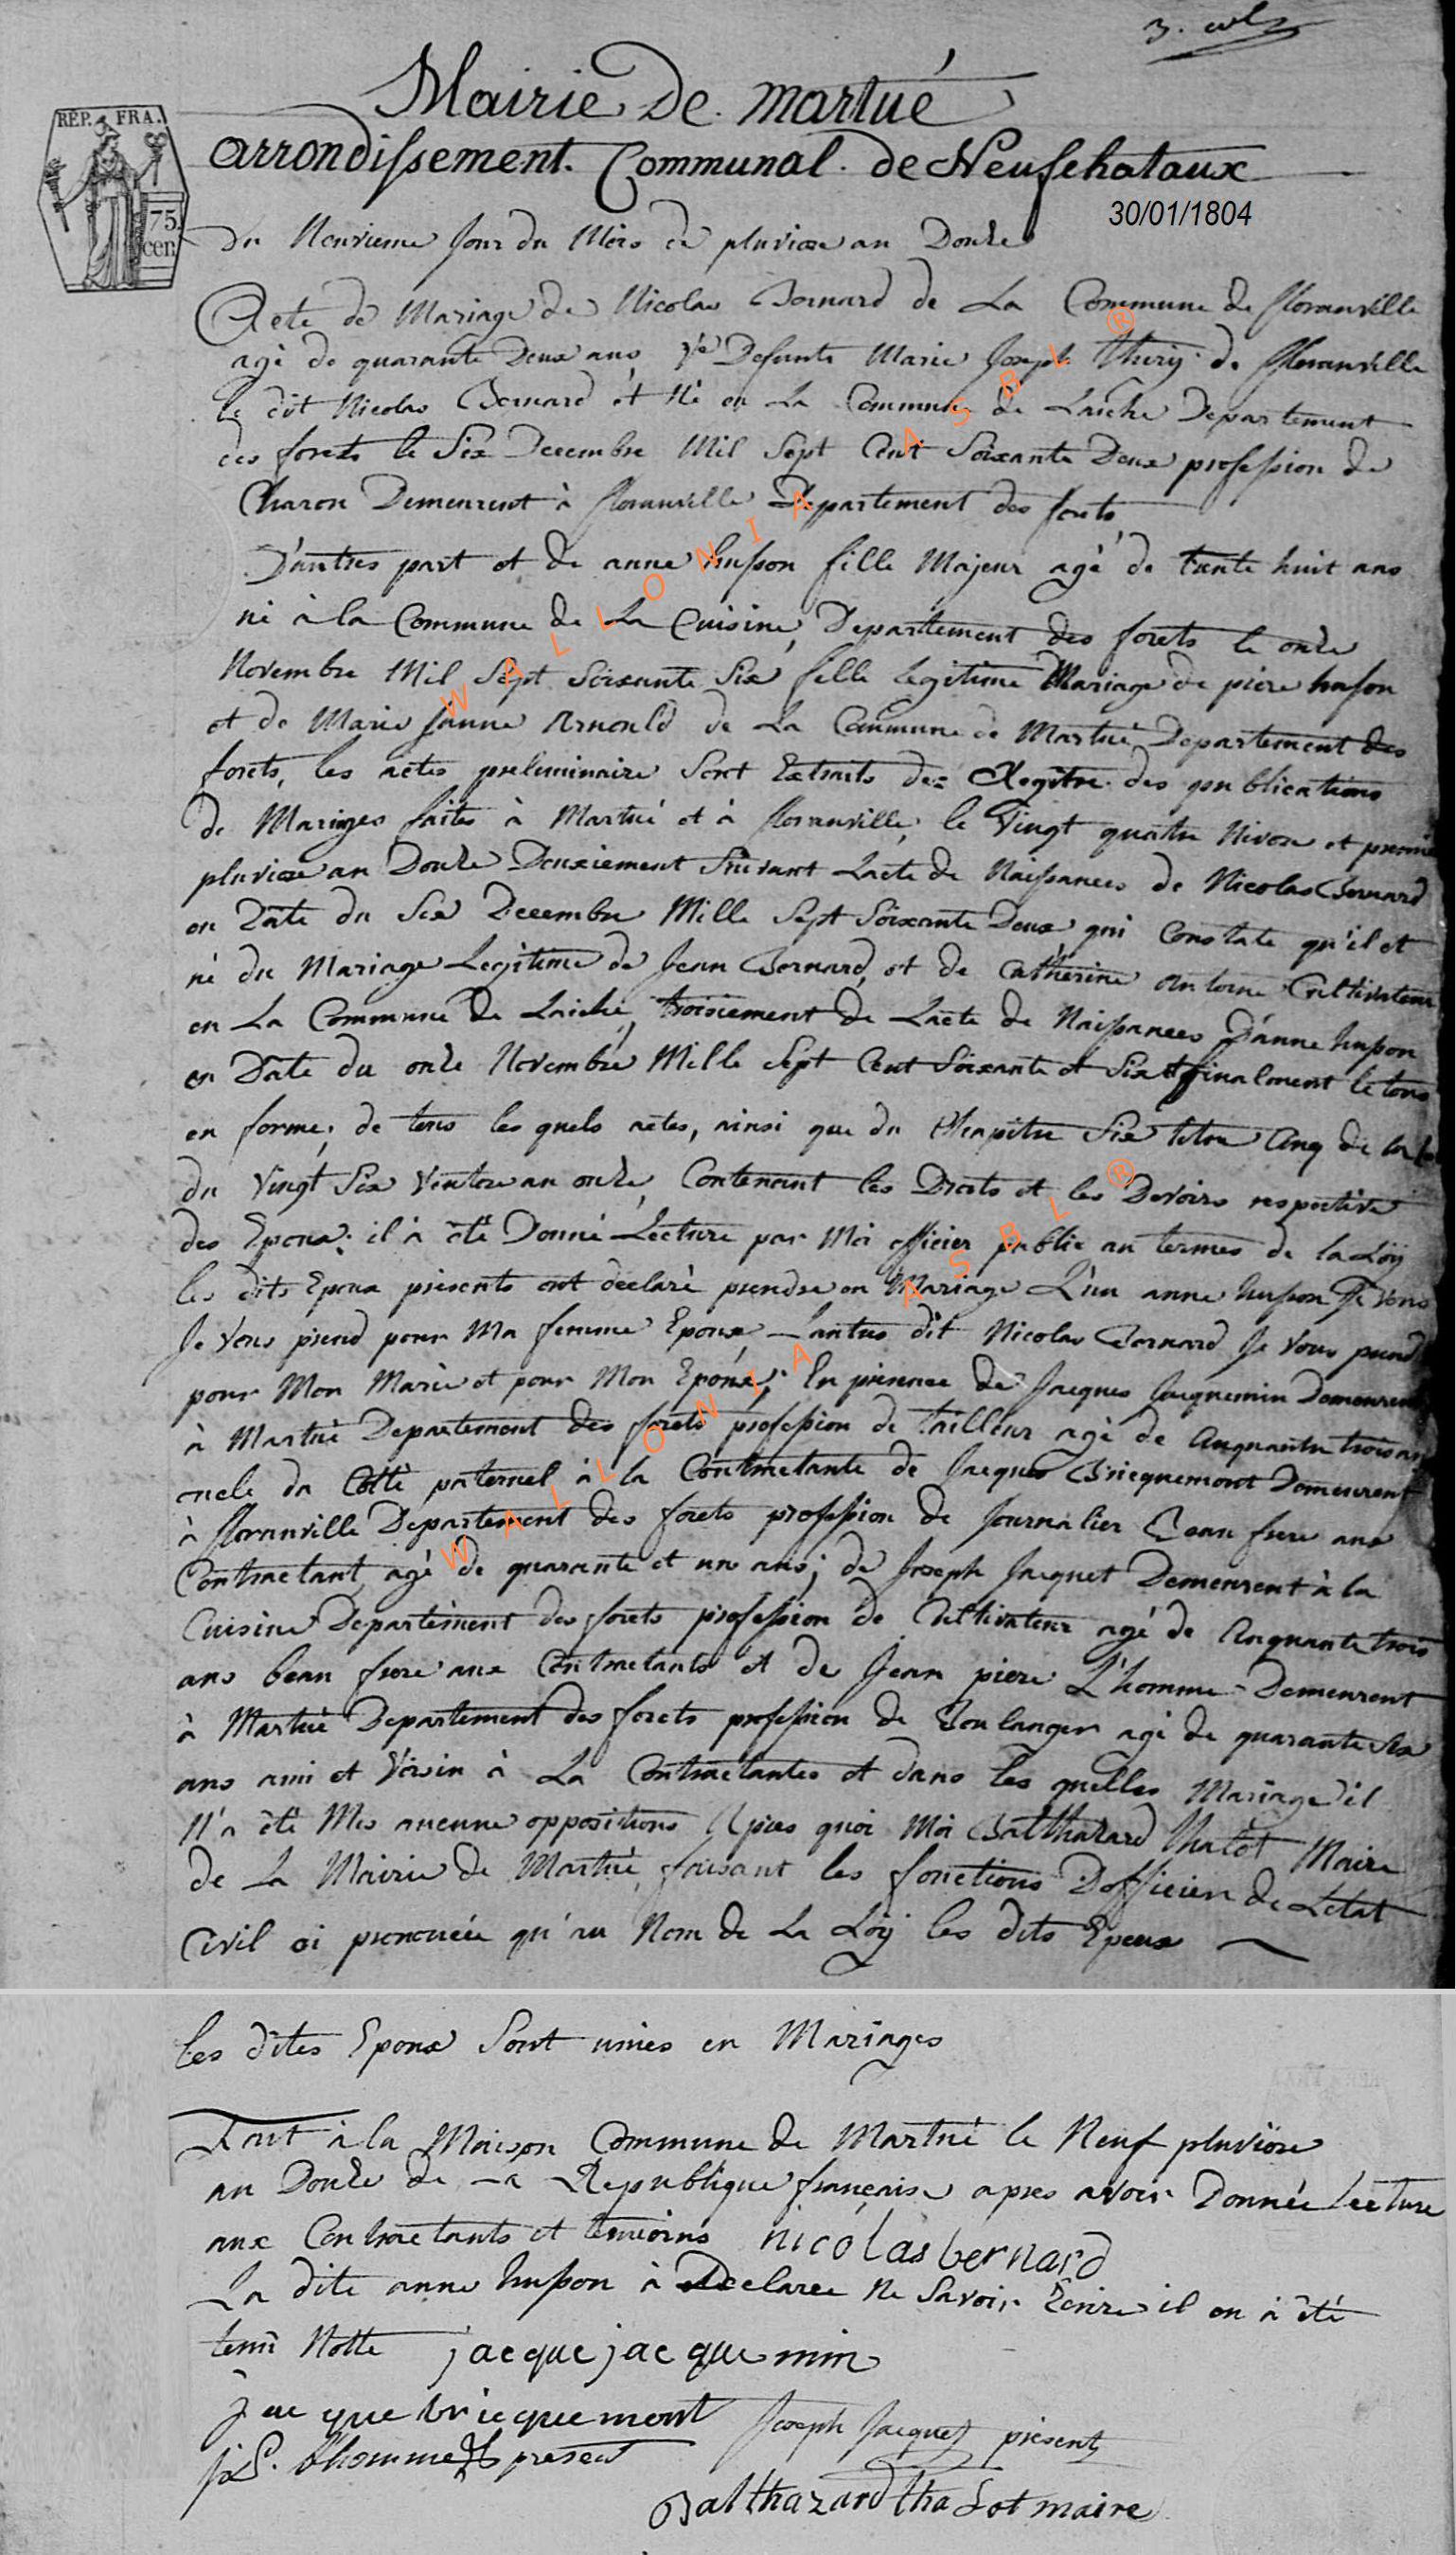 Mairie De martué
arrondissement Communal de Neufchataux
REP. FRA.
75 cen
30/01/1804
du Neuvieme Jour du Mois de pluviose an Douze
Acte de Mariage de Nicolas Bernard de La Commune de floranville
agé de quarante Deux ans Ve Defunte Marie Joseph thiry de floranville
le dit Nicolas Bernard et Né en La Commune de Laiche Departement
des forets le Six Decembre Mil Sept Cent Soixante Deux profession de
Charon Demeurent à floranville Departement des forets
D'autres part et de anne husson fille Majeur agé de trente huit ans
né à la Commune de La Cuisine Departement des forets le onze
Novembre Mil Sept Soixante Six fille legitime Mariage de piere huson
et de Marie Janne Arnould de La Commune de Martué Departement des
forets, les actes preliminaire Sont Extraits des Regitre des publications
de Mariages faites à Martué et à floranville le Vingt quatre Nivose et premie
pluviose an Douze Deuxiement Suivant Lacte de Naissances de Nicolas Bernard
en Date du Six Decembre Mille Sept Soixante Deux qui Constate qu'il et
né du Mariage Legitime de Jean Bernard et de Catherine antoine Cultivateur
en La Commune de Laiche, troisiement de Lacte de Naissances D'anne husson
en Date du onze Novembre Mille Sept Cent Soixante et Six et finalment le tous
en forme; de tous les quels actes, ainsi que du Chapitre Six titre Cinq de la
du Vingt Six Ventose an onze, Contenant les Droits et les Devoirs respective
des Epoux; il à été Donné Lecture par Moi officier public au termes de la Loÿ
les dits Epoux présents ont déclaré prendre en Mariage L'un anne husson Je Vous
Je Vous prend pour Ma femme Epouse Lautre dit Nicolas Bernard Je Vous prend
pour Mon Marié et pour Mon Epoux; En présence de Jacques Jacquemin Demeurent
à Martué Departement des forets profession de tailleur agé de Cinquante trois ans
oncle du Cotté paternel à la Contractante de Jacques Bricquemont Demeurent
à floranville Departement des forets profession de Journalier Beau frere aux
Contractant agé de quarante et un ans; de Joseph Jacquet Demeurent à la
Cuisine Departement des forets profession de Cultivateur agé de Cinquante trois
ans beau frere aux Contractants et de Jean piere L'homme Demeurent
à Martué Departement des forets profession de Boulanger agé de quarante Six
ans ami et Voisin à La Contractantes et dans les quelles Mariage il
N'a été Mis aucune oppositions Apres quoi Moi Balthazard thalot Maire
de La Mairie de Martué faisant les fonctions D'officier de Letat
Civil ai prononcée qu'au Nom de La Loÿ les dits Epoux
les dites Epoux Sont unies en Mariages
Fait à la Maison Commune de Martué le Neuf pluviose
an Douze de La Republique française apres avoir Donnée Lecture
aux Contractants et temoins nicolas bernard
La dite anne husson à Declaree Ne Savoir Ecrire il en à été
tenu Notte jacque jacquemin
jacque bricquemont Joseph Jacquet présent
j p. lhomme present
Balthazard thalot maire
WALLONIA ASBL ®
WALLONIA ASBL ®